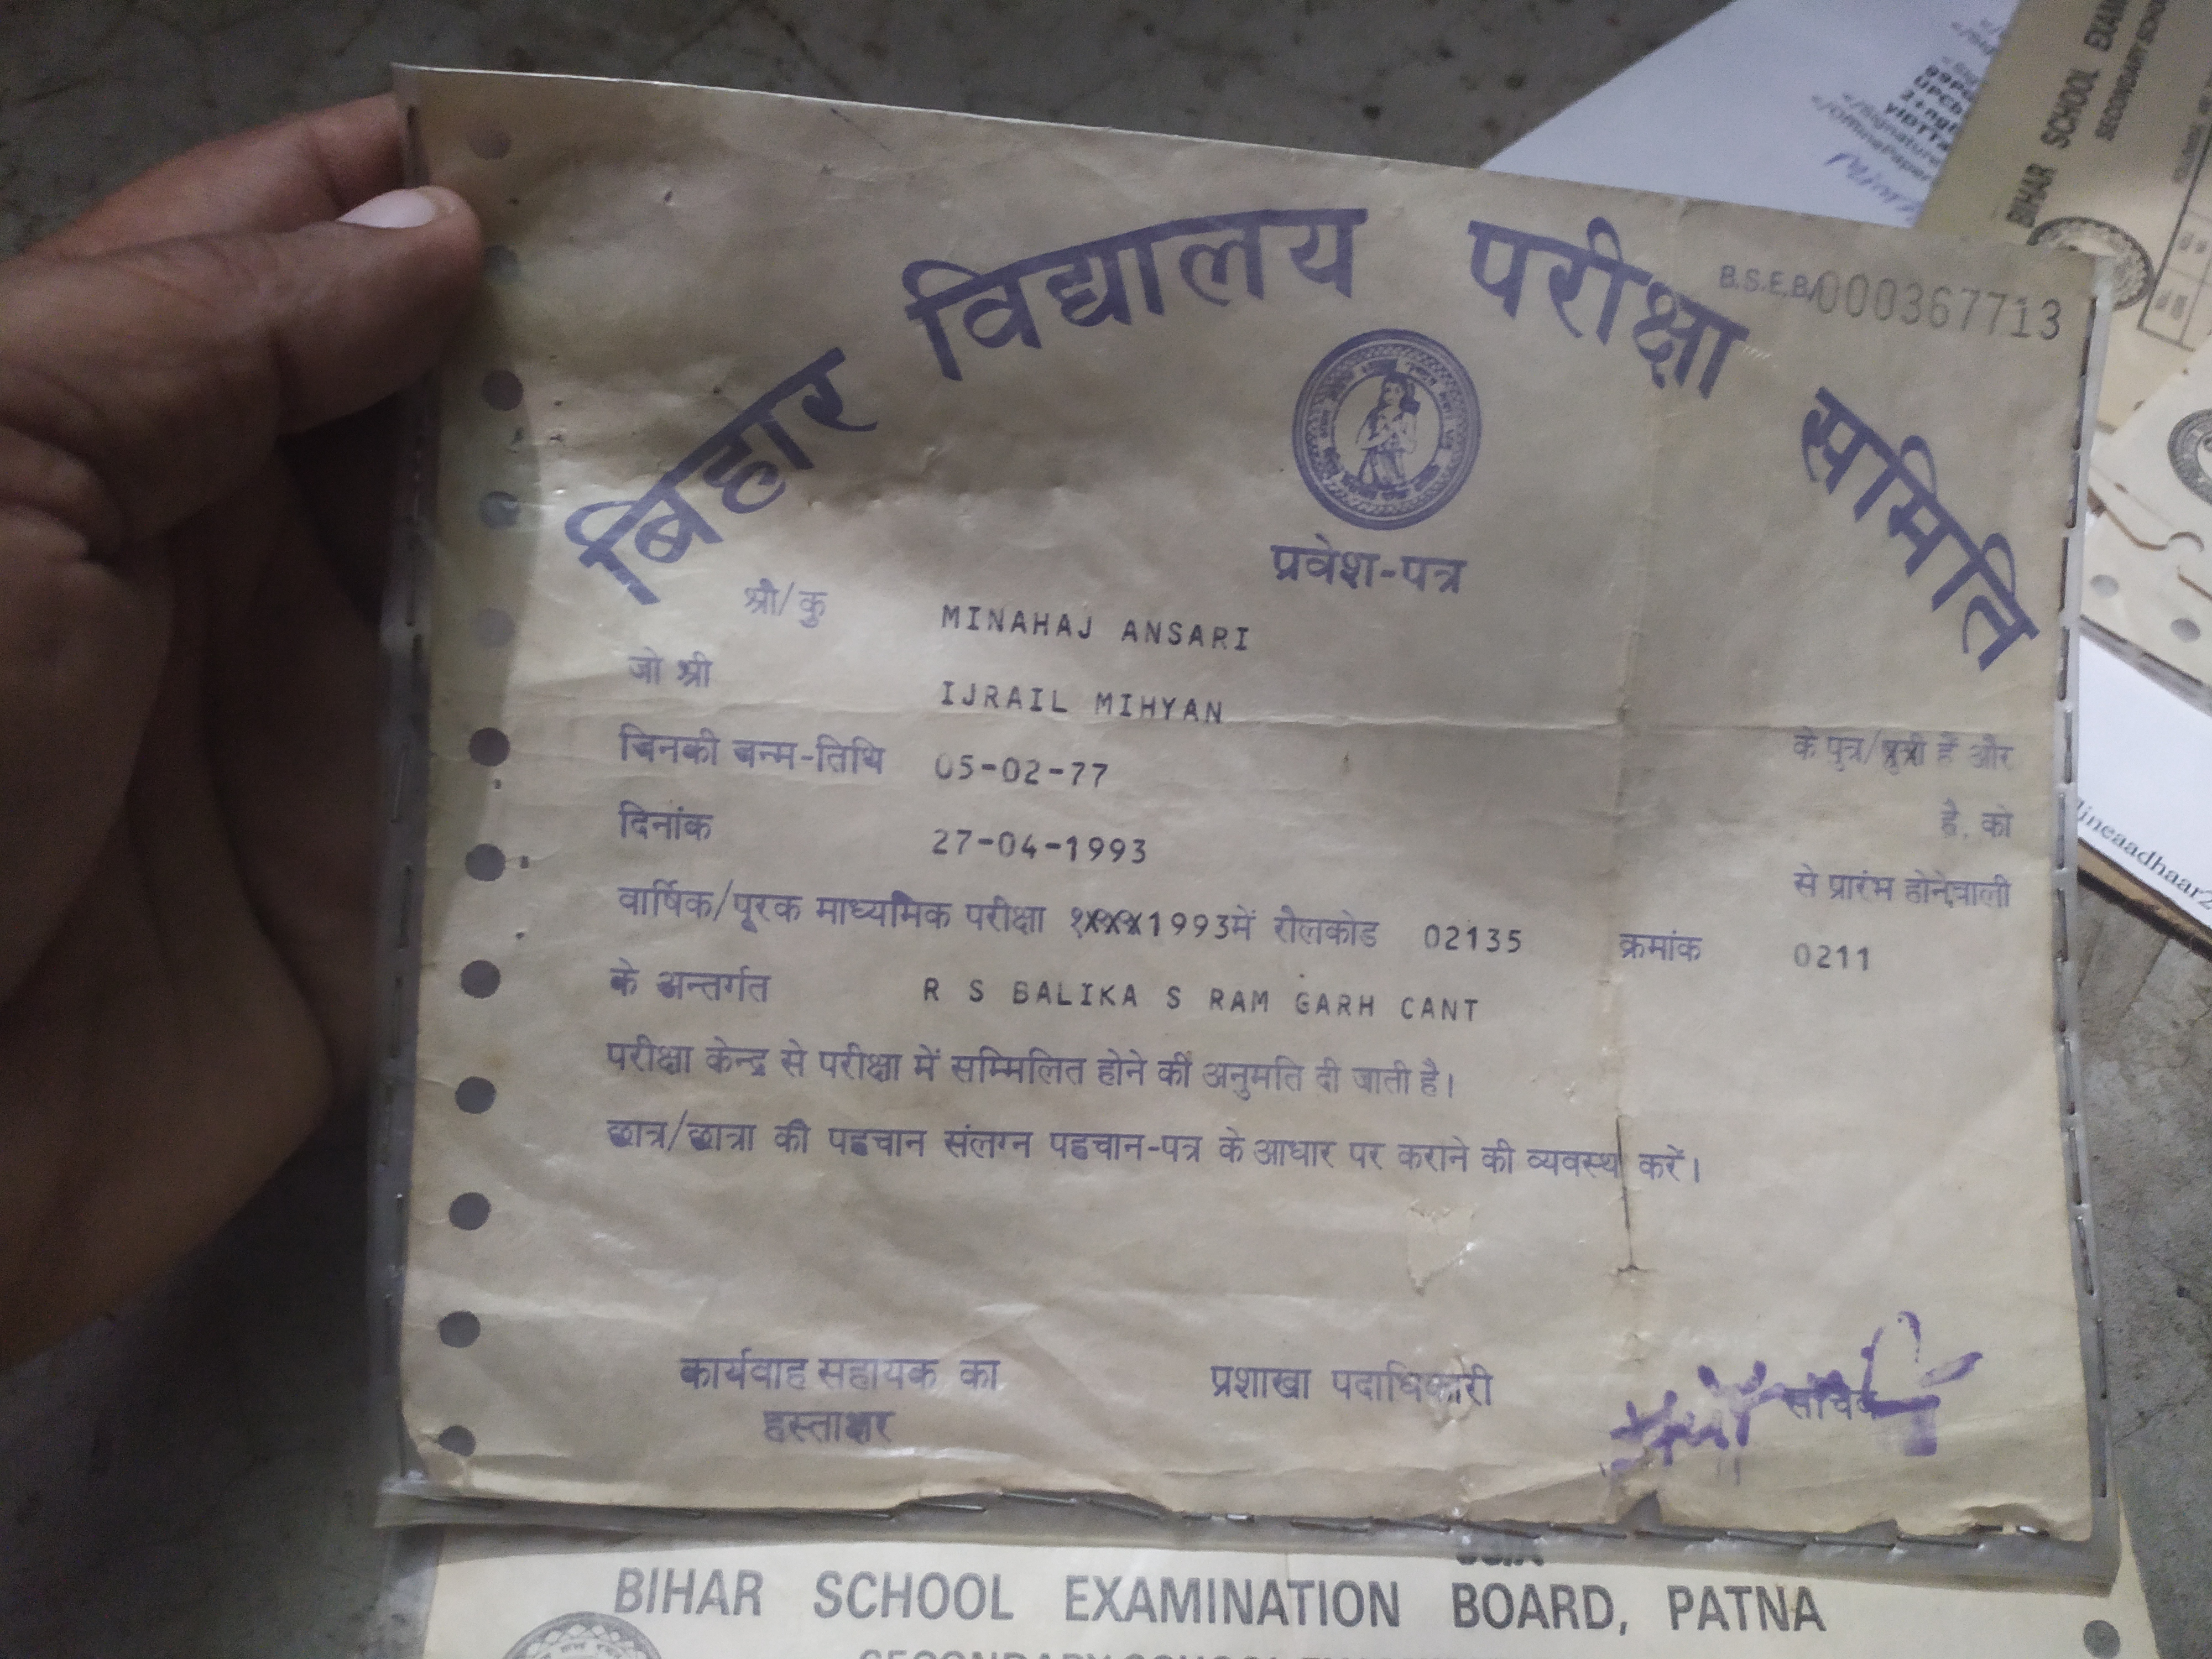 बिहार विद्यालय परीक्षा समिति
B.S.E.B/000367713
प्रवेश-पत्र
श्री/कु MINAHAJ ANSARI
जो श्री IJRAIL MIHYAN
के पुत्र/पुत्री हैं और
जिनकी जन्म-तिथि 05-02-77
है, को
दिनांक 27-04-1993
से प्रारंभ होनेवाली
वार्षिक/पूरक माध्यमिक परीक्षा 1993में रौलकोड 02135 क्रमांक 0211
के अन्तर्गत R S BALIKA S RAM GARH CANT
परीक्षा केन्द्र से परीक्षा में सम्मिलित होने की अनुमति दी जाती है।
छात्र/छात्रा की पहचान संलग्न पहचान-पत्र के आधार पर कराने की व्यवस्था करें।
कार्यवाह सहायक का
हस्ताक्षर
प्रशाखा पदाधिकारी
सचिव
BIHAR SCHOOL EXAMINATION BOARD, PATNA
BIHAR SCHOOL EXAM
SECONDARY SCHO